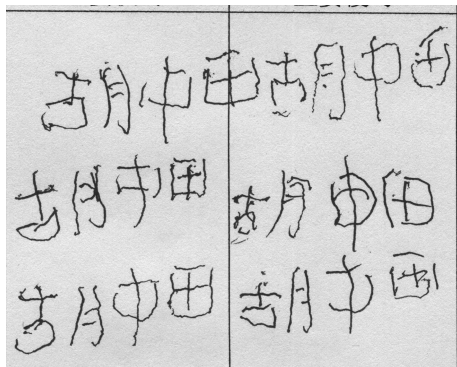 胡中田 胡中田
胡中田 胡中田
胡中田 胡中